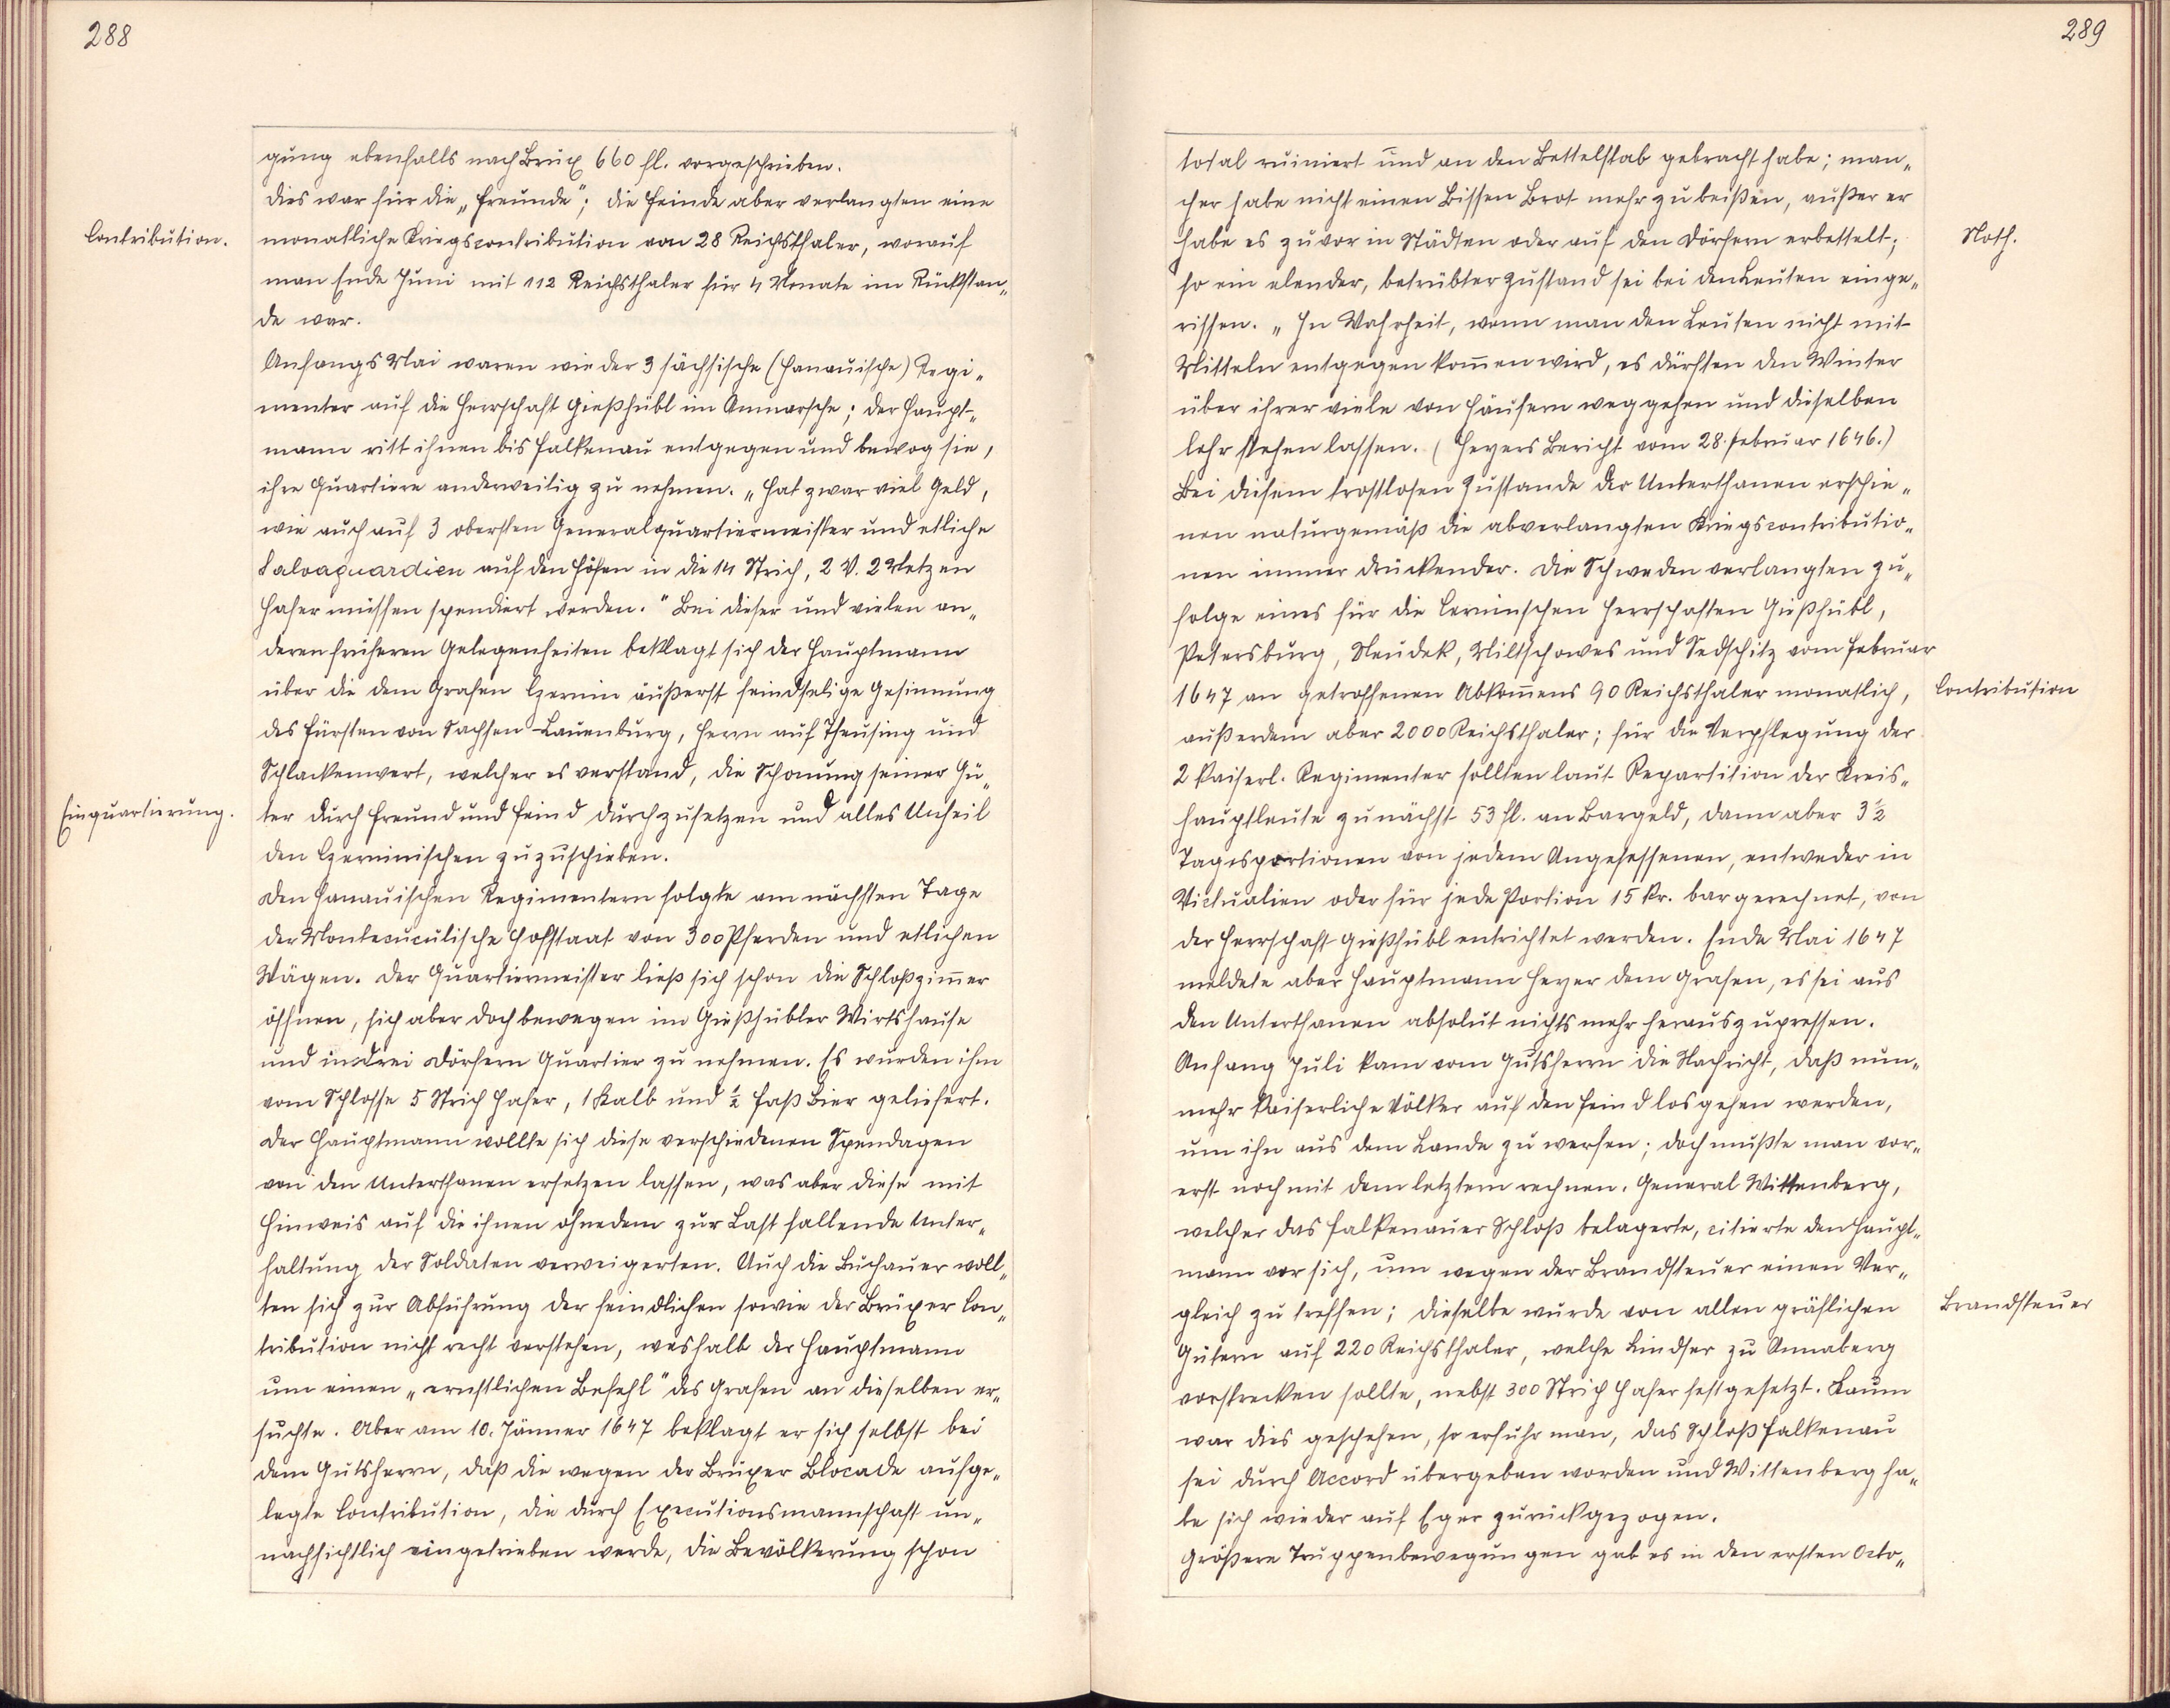 288
gung ebenfalls nach Brüx 660 fl. vorgeschrieben.
Dies war für die „Freunde“; die Feinde aber verlangten eine
Contribution.
monatliche Kriegscontribution von 28 Reichsthaler, worauf
man Ende Juni mit 112 Reichsthaler für 4 Monate im Rückstan„
de war.
Anfangs Mai waren wieder 3 sächsische (Hanauische) Regi„
menter auf die Herrschaft Gießhübl im Anmarsche; der Haupt„
mann ritt ihnen bis Falkenau entgegen und bewog sie,
ihre Quartiere anderweitig zu nehmen. „Hat zwar viel Geld,
wie auch auf 3 obersten Generalquartiermeister und etliche
Salvaguardien auf den Höfen in die 14 Strich, 2 V. 2 Metzen
Hafer müssen spendiert werden.“ Bei dieser und vielen an„
deren früheren Gelegenheiten beklagt sich der Hauptmann
über die dem Grafen Czernin äußerst feindselige Gesinnung
des Fürsten von Sachsen-Lauenburg, Herrn auf Theusing und
Schlackenwert, welcher es verstand, die Schonung seiner Gü„
Einquartierung.
ter durch Freund und Feind durchzusetzen und alles Unheil
den Czerninischen zuzuschieben.
Den Hanauischen Regimentern folgte am nächsten Tage
der Montecuculische Hofstaat von 300 Pferden und etlichen
Wägen. Der Quartiermeister ließ sich schon die Schloßzim̄er
öffnen, sich aber doch bewegen im Gießhübler Wirtshause
und in drei Dörfern Quartier zu nehmen. Es wurden ihm
vom Schlosse 5 Strich Hafer, 1 Kalb und ½ Faß Bier geliefert.
Der Hauptmann wollte sich diese verschiedenen Spendagen
von den Unterthanen ersetzen lassen, was aber diese mit
Hinweis auf die ihnen ohnedem zur Last fallende Unter„
haltung der Soldaten verweigerten. Auch die Buchauer woll„
ten sich zur Abführung der feindlichen sowie der Brüxer Con„
tribution nicht recht verstehen, weshalb der Hauptmann
um einen „ernstlichen Befehl“ des Grafen an dieselben er„
suchte. Aber am 10. Jänner 1647 beklagt er sich selbst bei
dem Gutsherrn, daß die wegen der Brüxer Blocade aufge„
legte Contribution, die durch Executionsmannschaft un„
nachsichtlich eingetrieben werde, die Bevölkerung schon
289
total ruiniert und an den Bettelstab gebracht habe; man„
cher habe nicht einen Bissen Brot mehr zu beißen, außer er
habe es zuvor in Städten oder auf den Dörfern erbettelt;
Noth.
so ein elender, betrübter Zustand sei bei den Leuten einge„
rissen. „In Wahrheit, wenn man den Leuten nicht mit
Mitteln entgegen kom̄en wird, es dürften den Winter
über ihrer viele von Häusern weggehen und dieselben
lehr stehen lassen. (Heyers Bericht vom 28. Februar 1646.)
Bei diesem trostlosen Zustande der Unterthanen erschie„
nen naturgemäß die abverlangten Kriegscontributio„
nen immer drückender. Die Schweden verlangten zu„
folge eines für die Czerninschen Herrschaften Gießhübl,
Petersburg, Neudek, Miltschowes und Sedschitz vom Februar
1647 an getroffenen Abkom̄ens 90 Reichsthaler monatlich,
Contribution
außerdem aber 2000 Reichsthaler; für die Verpflegung der
2 kaiserl. Regimenter sollten laut Repartition der Kreis„
hauptleute zunächst 53 fl. an Bargeld, dann aber 3½
Tagesportionen von jedem Angesessenen, entweder in
Victualien oder für jede Portion 15 kr. bar gerechnet, von
der Herrschaft Gießhübl entrichtet werden. Ende Mai 1647
meldete aber Hauptmann Heyer dem Grafen, es sei aus
den Unterthanen absolut nichts mehr herauszupressen.
Anfang Juli kam vom Gutsherrn die Nachricht, daß nun„
mehr kaiserliche Völker auf den Feind losgehen werden,
um ihn aus dem Lande zu werfen; doch mußte man vor„
erst noch mit dem letztern rechnen. General Wittenberg,
welcher das Falkenauer Schloß belagerte, citierte den Haupt„
mann vor sich, um wegen der Brandsteuer einen Ver„
gleich zu treffen; dieselbe wurde von allen gräflichen
Brandsteuer
Gütern auf 220 Reichsthaler, welche Lindser zu Annaberg
vorstrecken sollte, nebst 300 Strich Hafer festgesetzt. Kaum
war dies geschehen, so erfuhr man, das Schloß Falkenau
sei durch Accord übergeben worden und Wittenberg ha„
be sich wieder auf Eger zurückgezogen.
Größere Truppenbewegungen gab es in den ersten Octo„